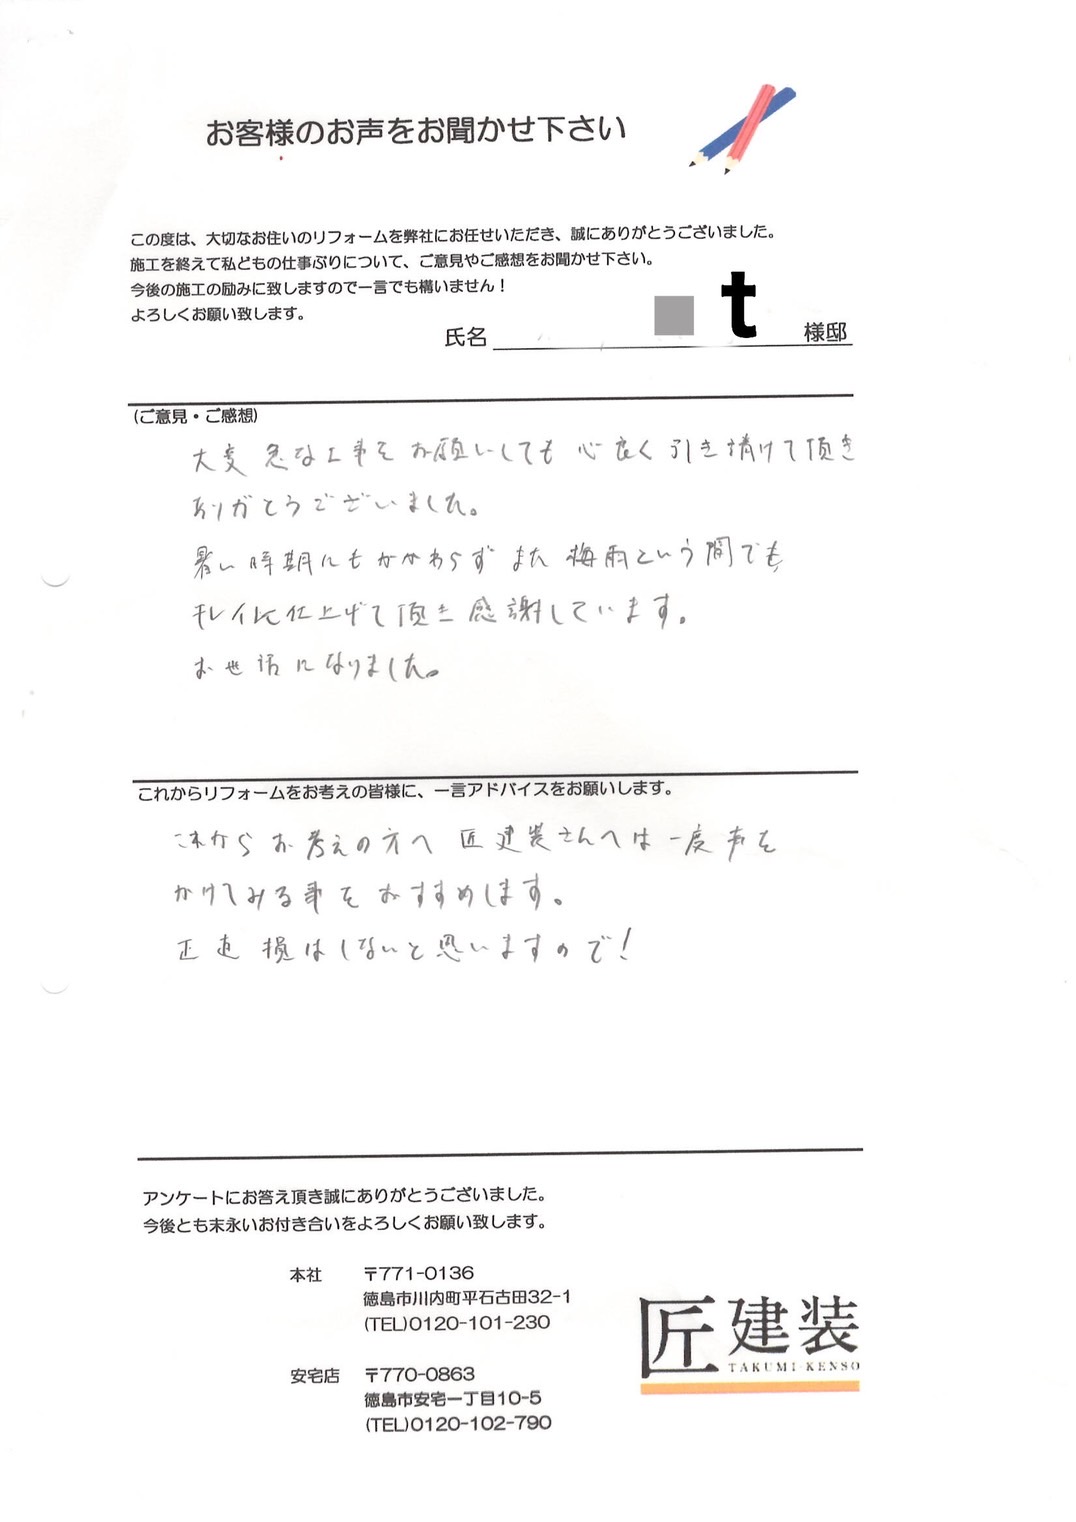 お客様のお声をお聞かせ下さい
この度は、大切なお住いのリフォームを弊社にお任せいただき、誠にありがとうございました。
施工を終えて私どもの仕事ぶりについて、ご意見やご感想をお聞かせ下さい。
今後の施工の励みに致しますので一言でも構いません！
よろしくお願い致します。
氏名 t 様邸
(ご意見・ご感想)
大変 急な工事を お願いしても 心良く 引き請けて頂き
ありがとうございました。
暑い時期にもかかわらず また 梅雨という間でも
キレイに仕上げて頂き 感謝しています。
お世話になりました。
これからリフォームをお考えの皆様に、一言アドバイスをお願いします。
これから お考えの方へ 匠建装さんへは 一度声を
かけてみる事を おすすめします。
正直 損はしないと思いますので！
アンケートにお答え頂き誠にありがとうございました。
今後とも末永いお付き合いをよろしくお願い致します。
本社 〒771-0136
徳島市川内町平石古田32-1
(TEL)0120-101-230
安宅店 〒770-0863
徳島市安宅一丁目10-5
(TEL)0120-102-790
匠建装
TAKUMI-KENSO